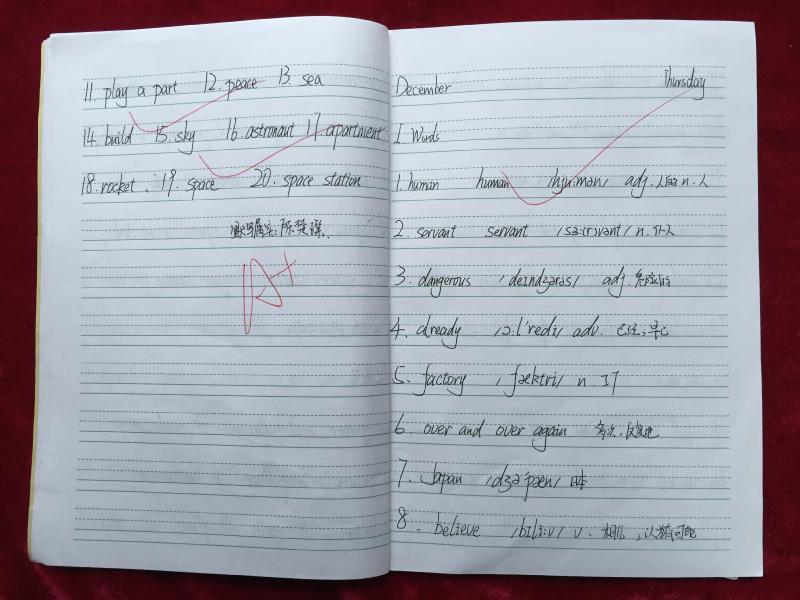 11. play a part 12. peace 13. sea
14. build 15. sky 16. astronaut 17 apartment
18. rocket . 19. space 20. space station
默写属实:陈
A+
December Thursday
I Words
1. human human /hju:mən/ adj. 人的 n. 人
2. servant servant /sɜ:(r)vənt/ n. 仆人
3. dangerous /deɪndʒərəs/ adj. 危险的
4. already /ɔ:l'redi/ adv. 已经;早已
5. factory /fæktri/ n. 工厂
6. over and over again 多次,反复地
7. Japan /dʒə'pæn/ 日本
8. believe /bɪli:v/ v. 相信,认为有可能